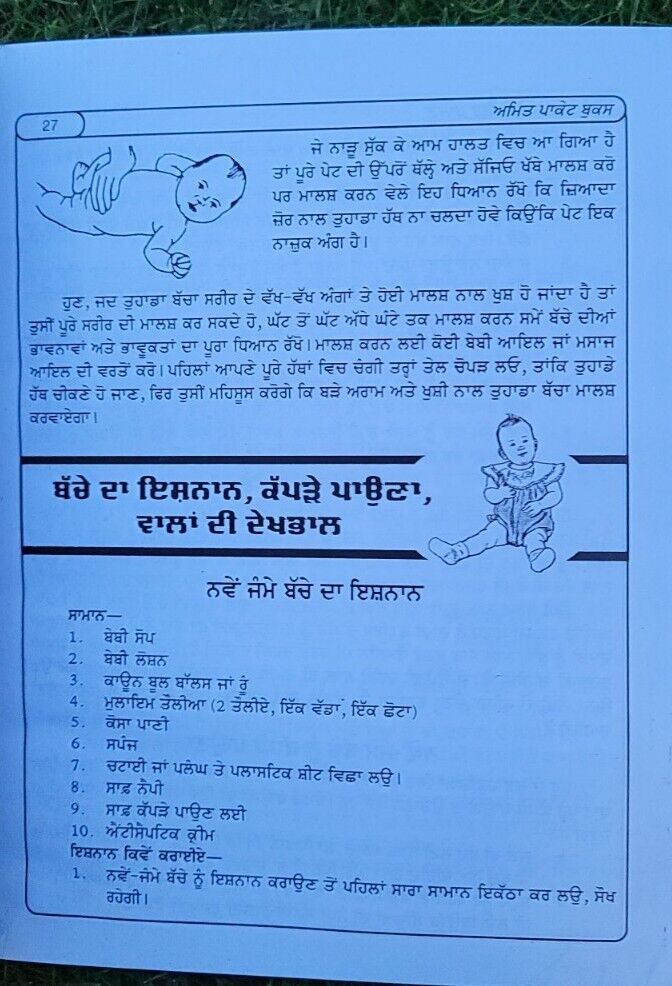 27
ਅਮਿਤ ਪਾਕੇਟ ਬੁਕਸ
ਜੇ ਨਾੜੂ ਸੁੱਕ ਕੇ ਆਮ ਹਾਲਤ ਵਿਚ ਆ ਗਿਆ ਹੈ
ਤਾਂ ਪੂਰੇ ਪੇਟ ਦੀ ਉੱਪਰੋਂ ਥੱਲੇ ਅਤੇ ਸੱਜਿਓ ਖੱਬੇ ਮਾਲਸ਼ ਕਰੋ
ਪਰ ਮਾਲਸ਼ ਕਰਨ ਵੇਲੇ ਇਹ ਧਿਆਨ ਰੱਖੋ ਕਿ ਜ਼ਿਆਦਾ
ਜ਼ੋਰ ਨਾਲ ਤੁਹਾਡਾ ਹੱਥ ਨਾ ਚਲਦਾ ਹੋਵੇ ਕਿਉਂਕਿ ਪੇਟ ਇਕ
ਨਾਜ਼ੁਕ ਅੰਗ ਹੈ।
ਹੁਣ, ਜਦ ਤੁਹਾਡਾ ਬੱਚਾ ਸਰੀਰ ਦੇ ਵੱਖ-ਵੱਖ ਅੰਗਾਂ ਤੇ ਹੋਈ ਮਾਲਸ਼ ਨਾਲ ਖੁਸ਼ ਹੋ ਜਾਂਦਾ ਹੈ ਤਾਂ
ਤੁਸੀਂ ਪੂਰੇ ਸਰੀਰ ਦੀ ਮਾਲਸ਼ ਕਰ ਸਕਦੇ ਹੋ, ਘੱਟ ਤੋਂ ਘੱਟ ਅੱਧੇ ਘੰਟੇ ਤਕ ਮਾਲਸ਼ ਕਰਨ ਸਮੇਂ ਬੱਚੇ ਦੀਆਂ
ਭਾਵਨਾਵਾਂ ਅਤੇ ਭਾਵੁਕਤਾਂ ਦਾ ਪੂਰਾ ਧਿਆਨ ਰੱਖੋ। ਮਾਲਸ਼ ਕਰਨ ਲਈ ਕੋਈ ਬੇਬੀ ਆਇਲ ਜਾਂ ਮਸਾਜ
ਆਇਲ ਦੀ ਵਰਤੋਂ ਕਰੋ। ਪਹਿਲਾਂ ਆਪਣੇ ਪੂਰੇ ਹੱਥਾਂ ਵਿਚ ਚੰਗੀ ਤਰ੍ਹਾਂ ਤੇਲ ਚੋਪੜ ਲਓ, ਤਾਂਕਿ ਤੁਹਾਡੇ
ਹੱਥ ਚੀਕਣੇ ਹੋ ਜਾਣ, ਫਿਰ ਤੁਸੀਂ ਮਹਿਸੂਸ ਕਰੋਗੇ ਕਿ ਬੜੇ ਅਰਾਮ ਅਤੇ ਖੁਸ਼ੀ ਨਾਲ ਤੁਹਾਡਾ ਬੱਚਾ ਮਾਲਸ਼
ਕਰਵਾਏਗਾ।
ਬੱਚੇ ਦਾ ਇਸ਼ਨਾਨ, ਕੱਪੜੇ ਪਾਉਣਾ,
ਵਾਲਾਂ ਦੀ ਦੇਖਭਾਲ
ਨਵੇਂ ਜੰਮੇ ਬੱਚੇ ਦਾ ਇਸ਼ਨਾਨ
ਸਾਮਾਨ—
1. ਬੇਬੀ ਸੋਪ
2. ਬੇਬੀ ਲੋਸ਼ਨ
3. ਕਾਊਨ ਬੂਲ ਬਾੱਲਸ ਜਾਂ ਰੂੰ
4. ਮੁਲਾਇਮ ਤੌਲੀਆ (2 ਤੌਲੀਏ, ਇੱਕ ਵੱਡਾ, ਇੱਕ ਛੋਟਾ)
5. ਕੋਸਾ ਪਾਣੀ
6. ਸਪੰਜ
7. ਚਟਾਈ ਜਾਂ ਪਲੰਘ ਤੇ ਪਲਾਸਟਿਕ ਸ਼ੀਟ ਵਿਛਾ ਲਉ।
8. ਸਾਫ਼ ਨੈਪੀ
9. ਸਾਫ਼ ਕੱਪੜੇ ਪਾਉਣ ਲਈ
10. ਐਂਟੀਸੈਪਟਿਕ ਕ੍ਰੀਮ
ਇਸ਼ਨਾਨ ਕਿਵੇਂ ਕਰਾਈਏ—
1. ਨਵੇਂ-ਜੰਮੇ ਬੱਚੇ ਨੂੰ ਇਸ਼ਨਾਨ ਕਰਾਉਣ ਤੋਂ ਪਹਿਲਾਂ ਸਾਰਾ ਸਾਮਾਨ ਇਕੱਠਾ ਕਰ ਲਉ, ਸੌਖ
ਰਹੇਗੀ।